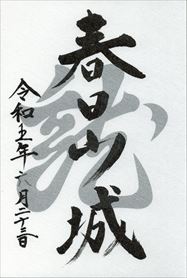 春日山城
龍
令和五年六月二十三日